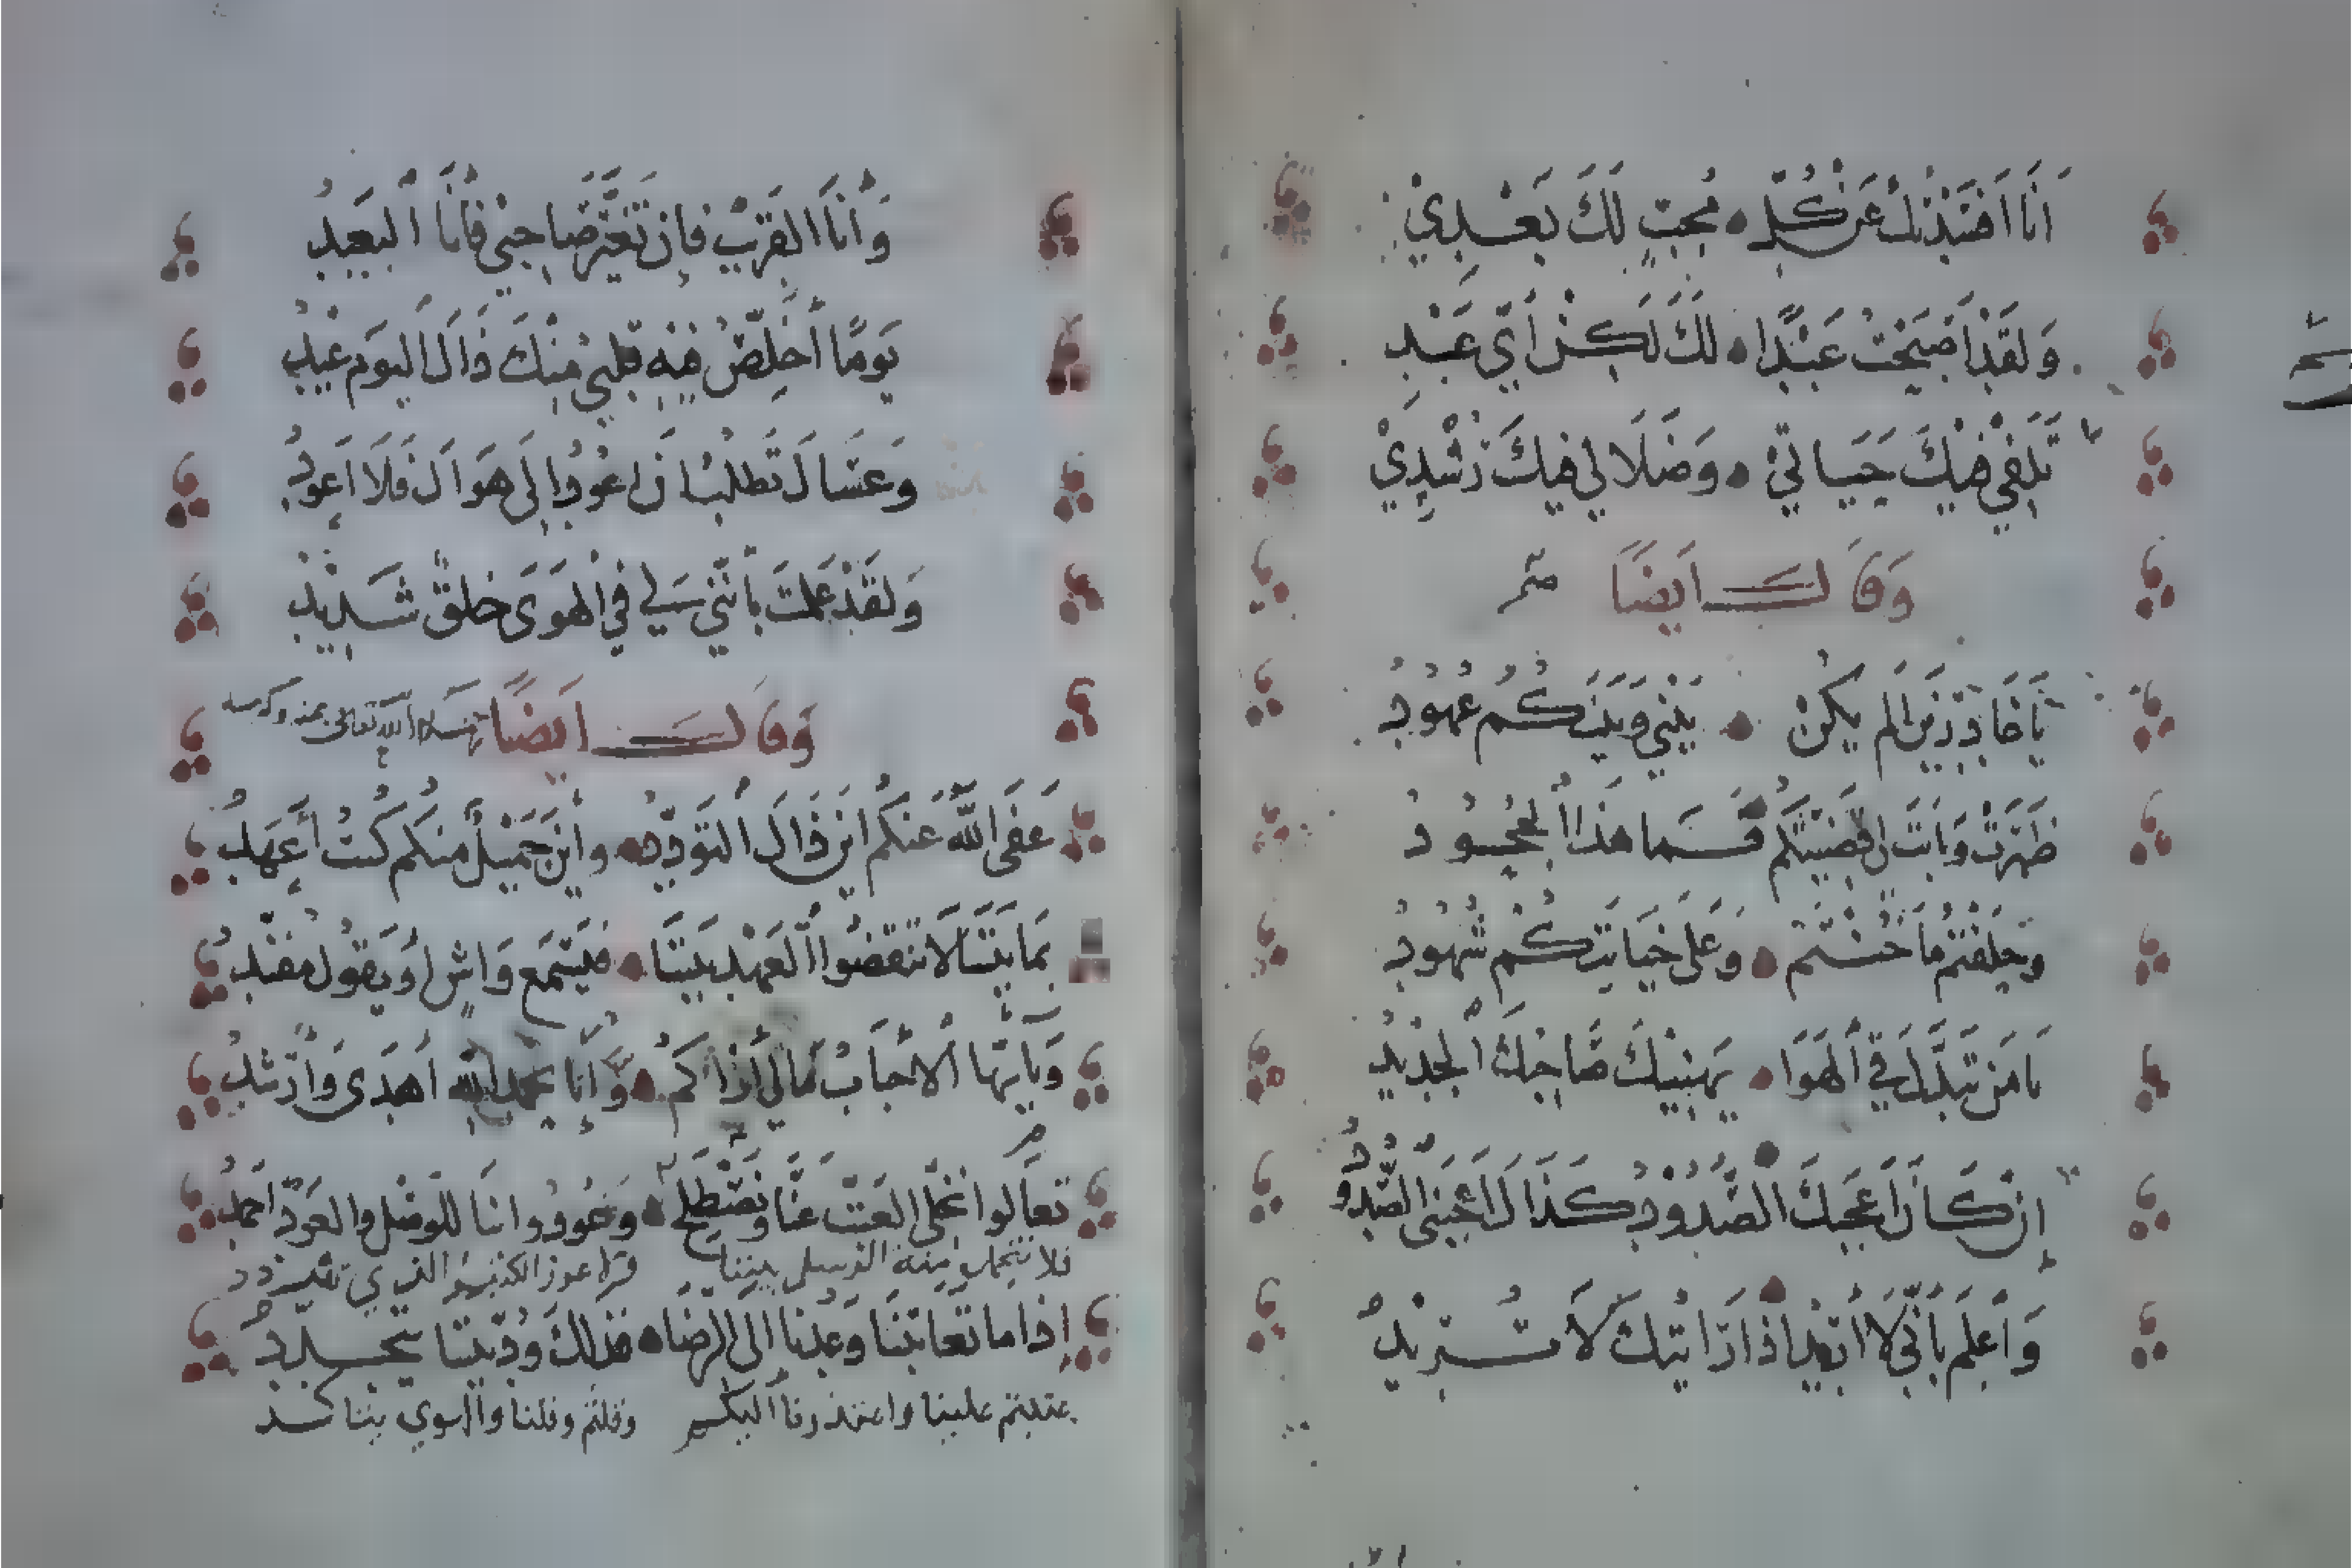 أَنَا أَفْتَدِيْكَ عَنْ كُلِّ مُحِبٍّ لَكَ بَعْدِيْ
وَلَقَدْ أَصْبَحْتُ عَبْدًا لَكَ لَكِنْ أَيَّ عَبْدِ
تَلَفِي فِيْكَ حَيَاتِيْ وَضَلَالِي فِيكَ رُشْدِيْ
وَقَالَ أَيضًا
يَا غَادِرِيْنَ أَلَم يَكُنْ بَيْنِي وَبَيْنَكُمْ عُهُودُ
ظَهَرَتْ وَبَانَتْ لِي قَضِيَّتُكُم فَمَا هَذَا الجُحُودُ
وَحَلَفْتُمُ مَا خُنْتُمُ وَعَلَى خِيَانَتِكُمْ شُهُودُ
يَا مَنْ تَبَدَّلَ فِي الهَوَا يَهْنِيْكَ صَاحِبُكَ الجَدِيْدُ
إِنْ كَانَ أَعْجَبَكَ الصُّدُوْدُ كَذَاكَ أَعْجَبَنِي الصُّدُودُ
وَاعْلَمْ بِأَنِّي لَا أُرِيْدُ إِذَا رَأَيْتُكَ لَا تُرِيْدُ
وَأَنَا القَرِيْبُ فَإِنْ تَغَيَّرَ صَاحِبِي فَأَنَا البَعِيدُ
يَومًا أُخَلِّصُ فِيْهِ قَلْبِي مِنْكَ ذَاكَ اليَوم عِيْدُ
وَعَسَاكَ تَطلُبُ أَن أَعُودَ إِلَى هَوَاكَ فَلَا أَعُودُ
وَلَقَدْ عَلِمتَ بِأَنَّنِي لِي فِي الهَوَى خُلقٌ شَدِيْدُ
وَقَالَ أَيضًا الله تعالى بمنه وكرمه
عَفَى اللَّهُ عَنكُم أَيْنَ ذَاكَ التَّوَدُّدُ وَأَيْنَ جَمِيْلٌ مِنكُم كُنْتُ أَعْهَدُ
بِمَا بَيْنَنَا لَا تَنْقُضُوا العَهْدَ بَيْنَنَا فَيَسْمَعَ وَاشٍ أَو يَقُولَ مُفَنِّدُ
وَيَا أَيُّهَا الأَحْبَابُ مَا لِي أَرَاكُمُ وَإِنَّا بِحَمْدِ اللَّهِ أَهْدَى وَأَرْشَدُ
تَعَالَوا نُخَلِّي العَتْبَ عَنَّا وَنَصْطَلِحْ وَعُودُوا بِنَا لِلوَصْلِ وَالعَوْدُ أَحمَدُ
إِذَا مَا تَعَاتَبْنَا وَعُدْنَا إِلَى الرِّضَا فَذَلِكَ وُدٌّ بَيْنَنَا يَتَجَدَّدُ
عتبتم علينا واعتذرنا اليكم وقلتم وقلنا والهوى بيننا